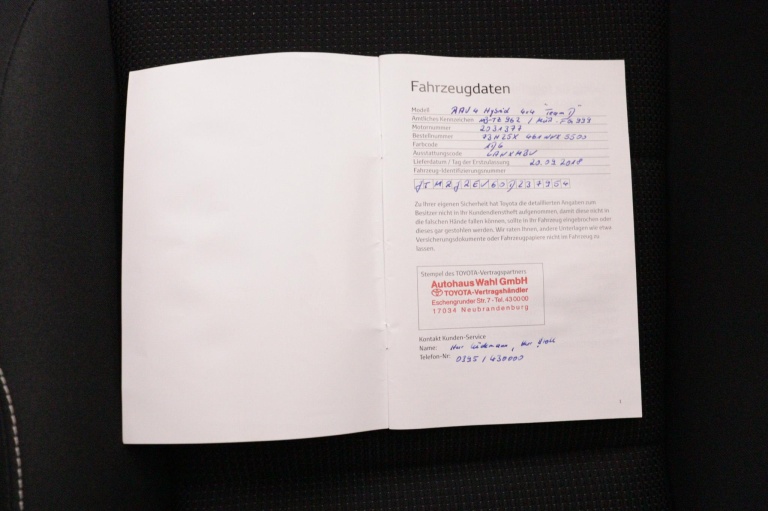 Fahrzeugdaten
Modell RAV4 Hybrid 4x4 "Team D"
Amtliches Kennzeichen
Motornummer 2031377
Bestellnummer
Farbcode
Ausstattungscode
Lieferdatum / Tag der Erstzulassung 20.09.2018
Fahrzeug-Identifizierungsnummer
Zu Ihrer eigenen Sicherheit hat Toyota die detaillierten Angaben zum
Besitzer nicht in Ihr Kundendienstheft aufgenommen, damit diese nicht in
die falschen Hände fallen können, sollte in Ihr Fahrzeug eingebrochen oder
dieses gar gestohlen werden. Wir raten Ihnen, andere Unterlagen wie etwa
Versicherungsdokumente oder Fahrzeugpapiere nicht im Fahrzeug zu
lassen.
Stempel des TOYOTA-Vertragspartners
Autohaus Wahl GmbH
TOYOTA-Vertragshändler
Eschengrunder Str. 7 - Tel. 43 00 00
17034 Neubrandenburg
Kontakt Kunden-Service
Name: Herr
Telefon-Nr: 0395 / 430000
1